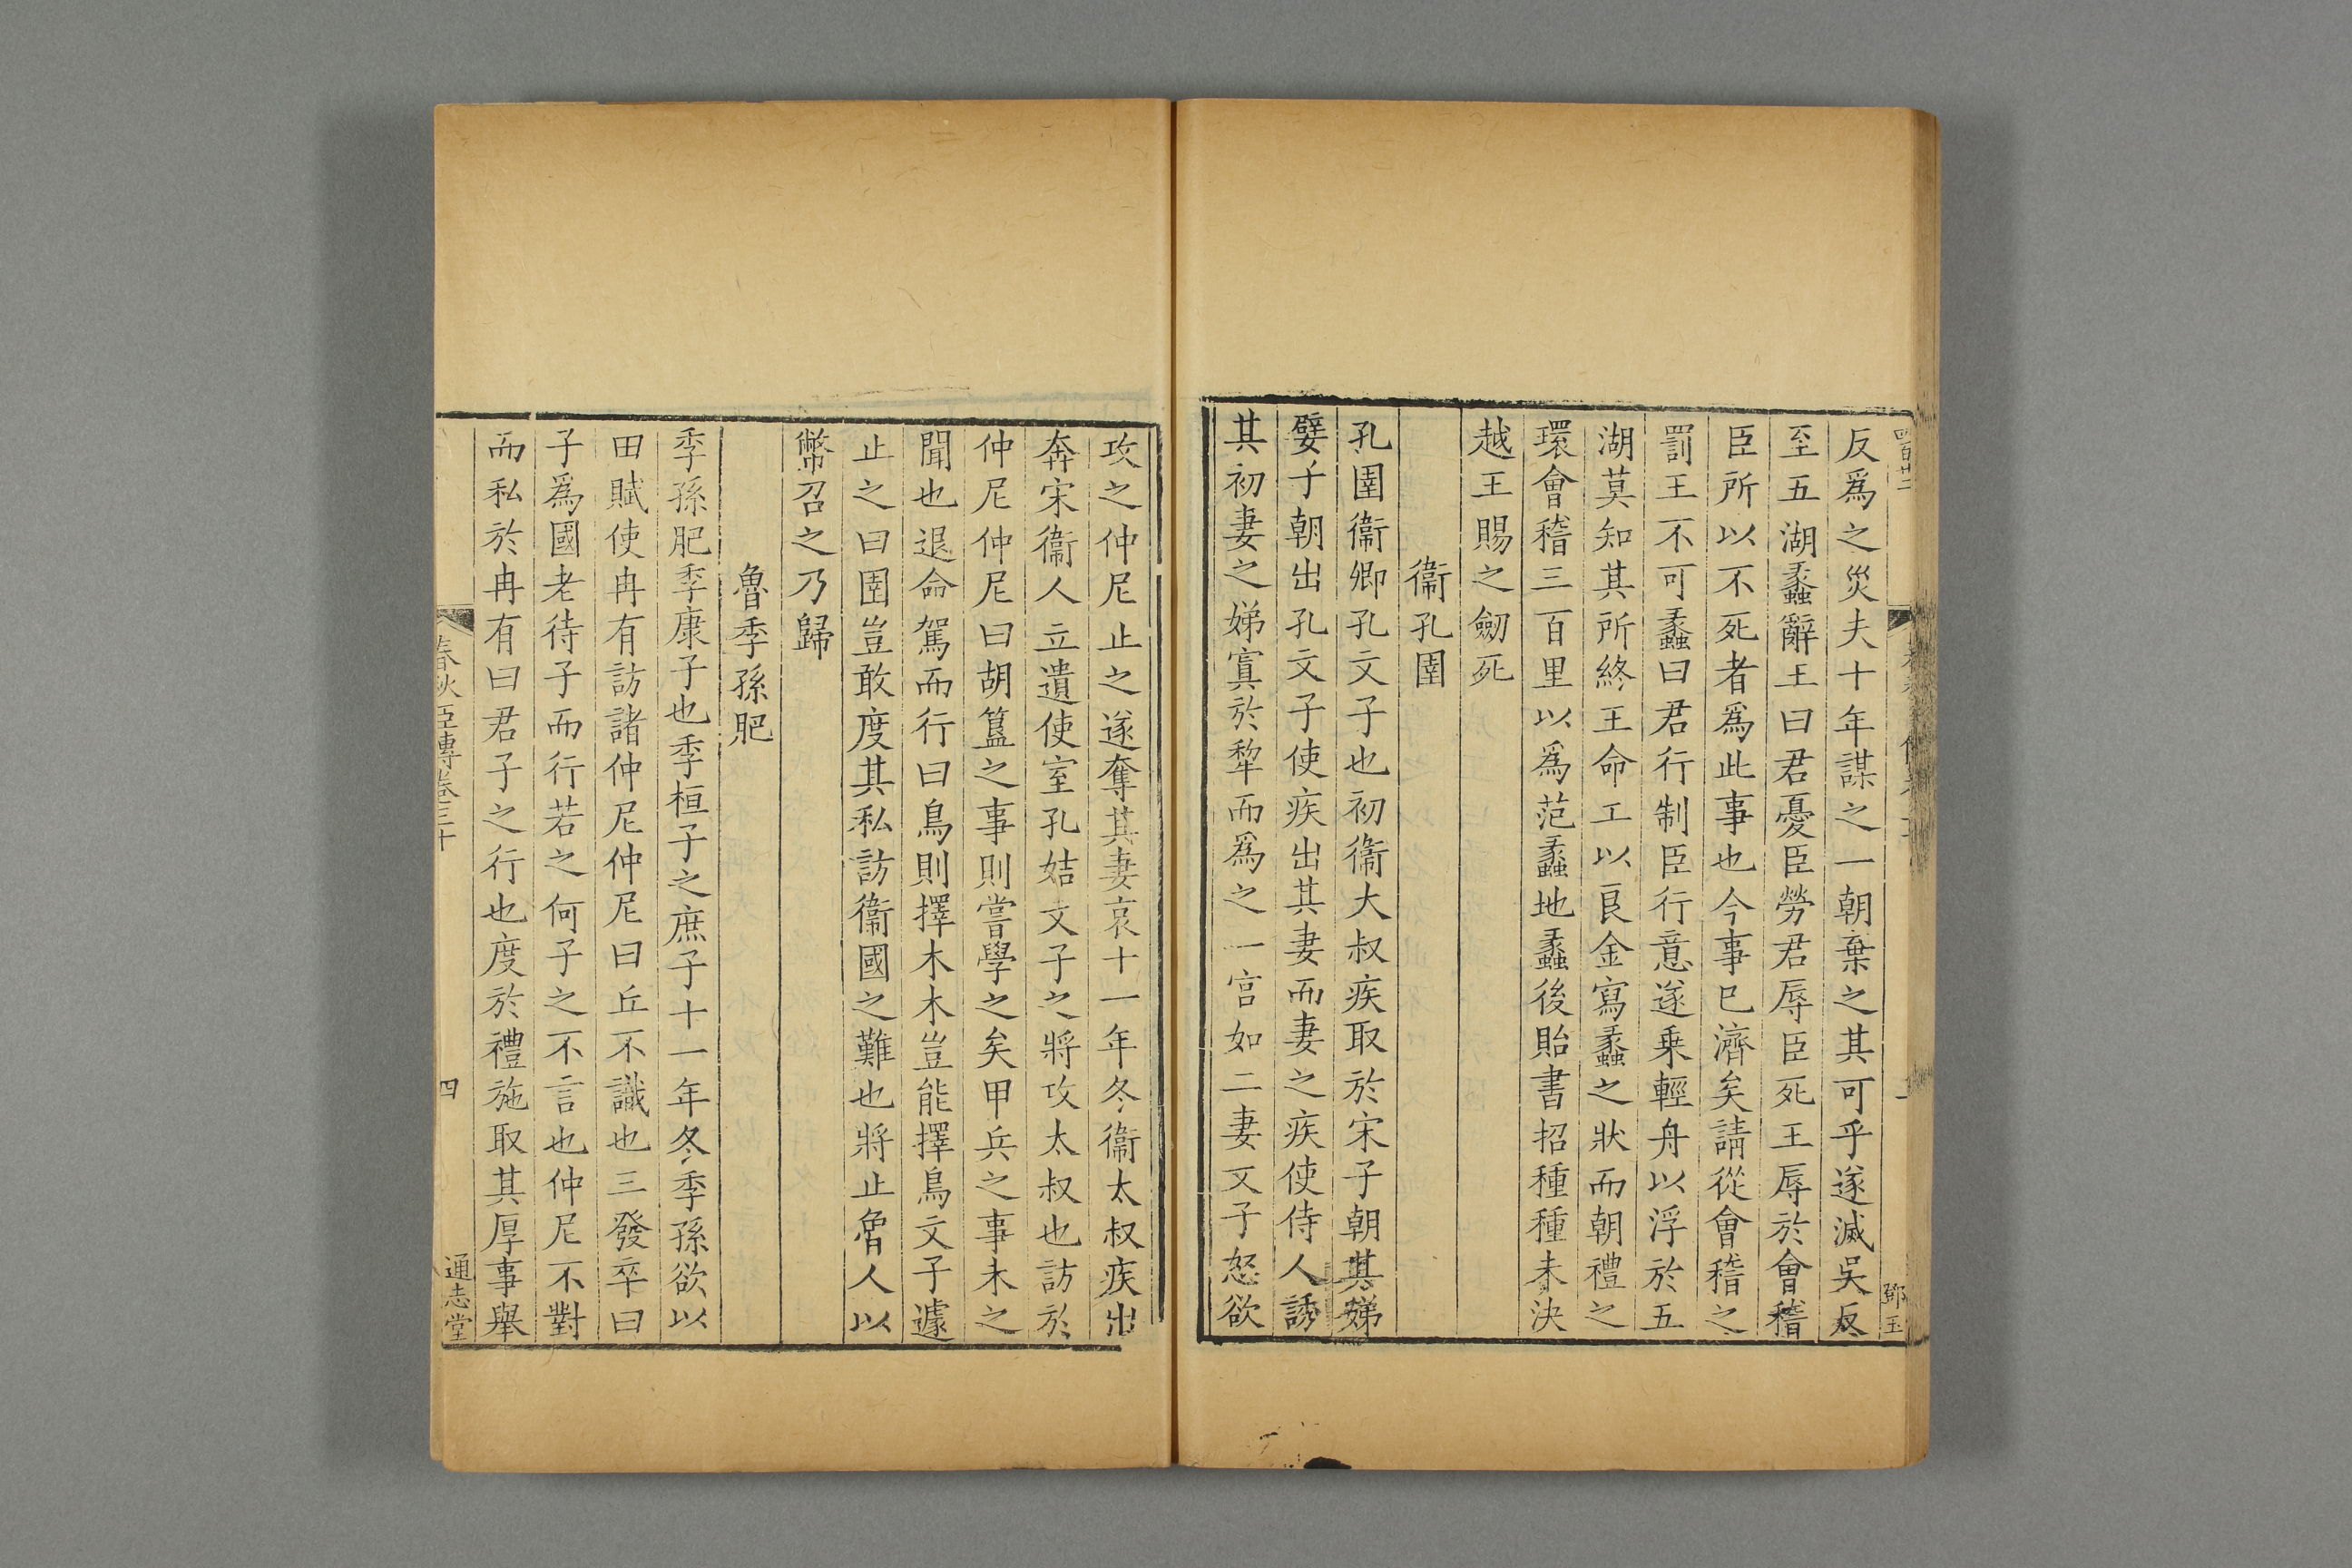 四百廿二
鄧玉
反爲之災夫十年謀之一朝棄之其可乎遂滅吳反
至五湖蠡辭王曰君憂臣勞君辱臣死王辱於會稽
臣所以不死者爲此事也今事已濟矣請從會稽之
罰王不可蠡曰君行制臣行意遂乗輕舟以浮於五
湖莫知其所終王命工以良金寫蠡之狀而朝禮之
環會稽三百里以爲范蠡地蠡後貽書招種種未決
越王賜之劒死
衞孔圉
孔圉衞卿孔文子也初衞大叔疾取於宋子朝其娣
嬖子朝出孔文子使疾出其妻而妻之疾使侍人誘
其初妻之娣寘於犂而爲之一宫如二妻文子怒欲
攻之仲尼止之遂奪其妻哀十一年冬衞太叔疾出
奔宋衞人立遺使室孔姞文子之將攻太叔也訪於
仲尼仲尼曰胡簋之事則嘗學之矣甲兵之事未之
聞也退命駕而行曰鳥則擇木木豈能擇鳥文子遽
止之曰圉豈敢度其私訪衞國之難也將止魯人以
幣召之乃歸
魯季孫肥
季孫肥季康子也季桓子之庶子十一年冬季孫欲以
田賦使冉有訪諸仲尼仲尼曰丘不識也三發卒曰
子爲國老待子而行若之何子之不言也仲尼不對
而私於冉有曰君子之行也度於禮施取其厚事舉
春秋臣傳卷三十
四
通志堂